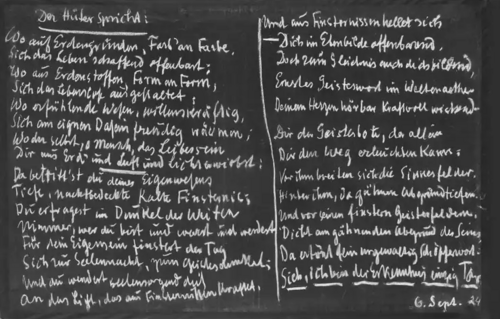 Der Hüter spricht:
Wo auf Erdengründen, Farb' an Farbe,
Sich das Leben schaffend offenbart;
Wo aus Erdenstoffen, Form an Form,
Sich das Lebenslose ausgestaltet;
Wo erfühlende Wesen, willenskräftig,
Sich am eignen Dasein freudig wärmen;
Wo du selbst, o Mensch, das Leibessein
Dir aus Erd' und Luft und Licht erwirbst:
Da betrittst du deines Eigenwesens
Tiefe, nachtbedeckte kalte Finsternis;
Du erfragest im Dunkel der Weiten
Nimmer, wer du bist und warst und werdest
Für dein Eigensein finstert der Tag
Sich zur Seelennacht, zum Geistesdunkel;
Und du wendest seelensorgend dich
An das Licht, das aus Finsternissen kraftet.
Und aus Finsternissen hellet sich
Dich im Ebenbilde offenbarend,
Doch zum Gleichnis auch dich bildend,
Ernstes Geisteswort im Weltenaether
Deinem Herzen hörbar kraftvoll wirkend
Dir der Geistesbote, der allein
Dir den Weg erleuchten kann:
Vor ihm breiten sich die Sinnesfelder.
Hinter ihm, da gähnen Abgrundtiefen.
Und vor seinen finstern Geistesfeldern,
Dicht am gähnenden Abgrund des Seins,
Da ertönt sein urgewaltig Schöpferwort:
Sieh, ich bin der Erkenntnis einzig Tor
6. Sept. 24